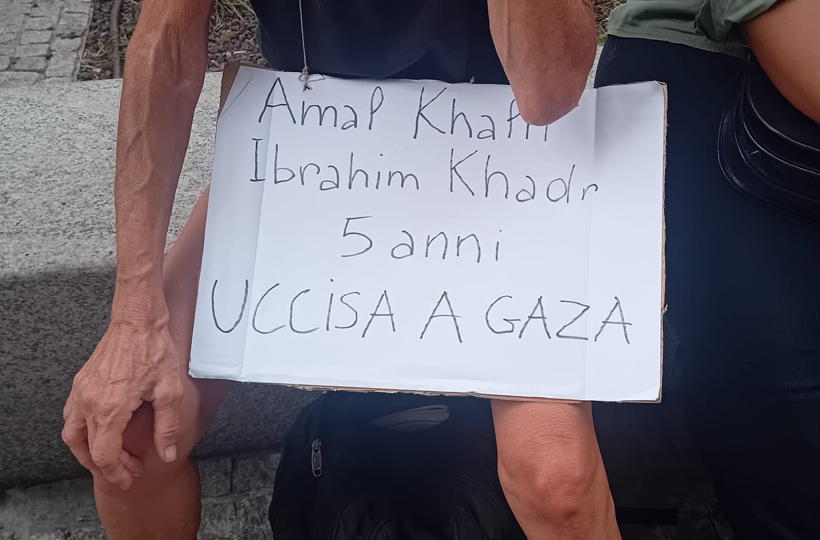 Amal
Ibrahim Khadr
5 anni
UCCISA A GAZA